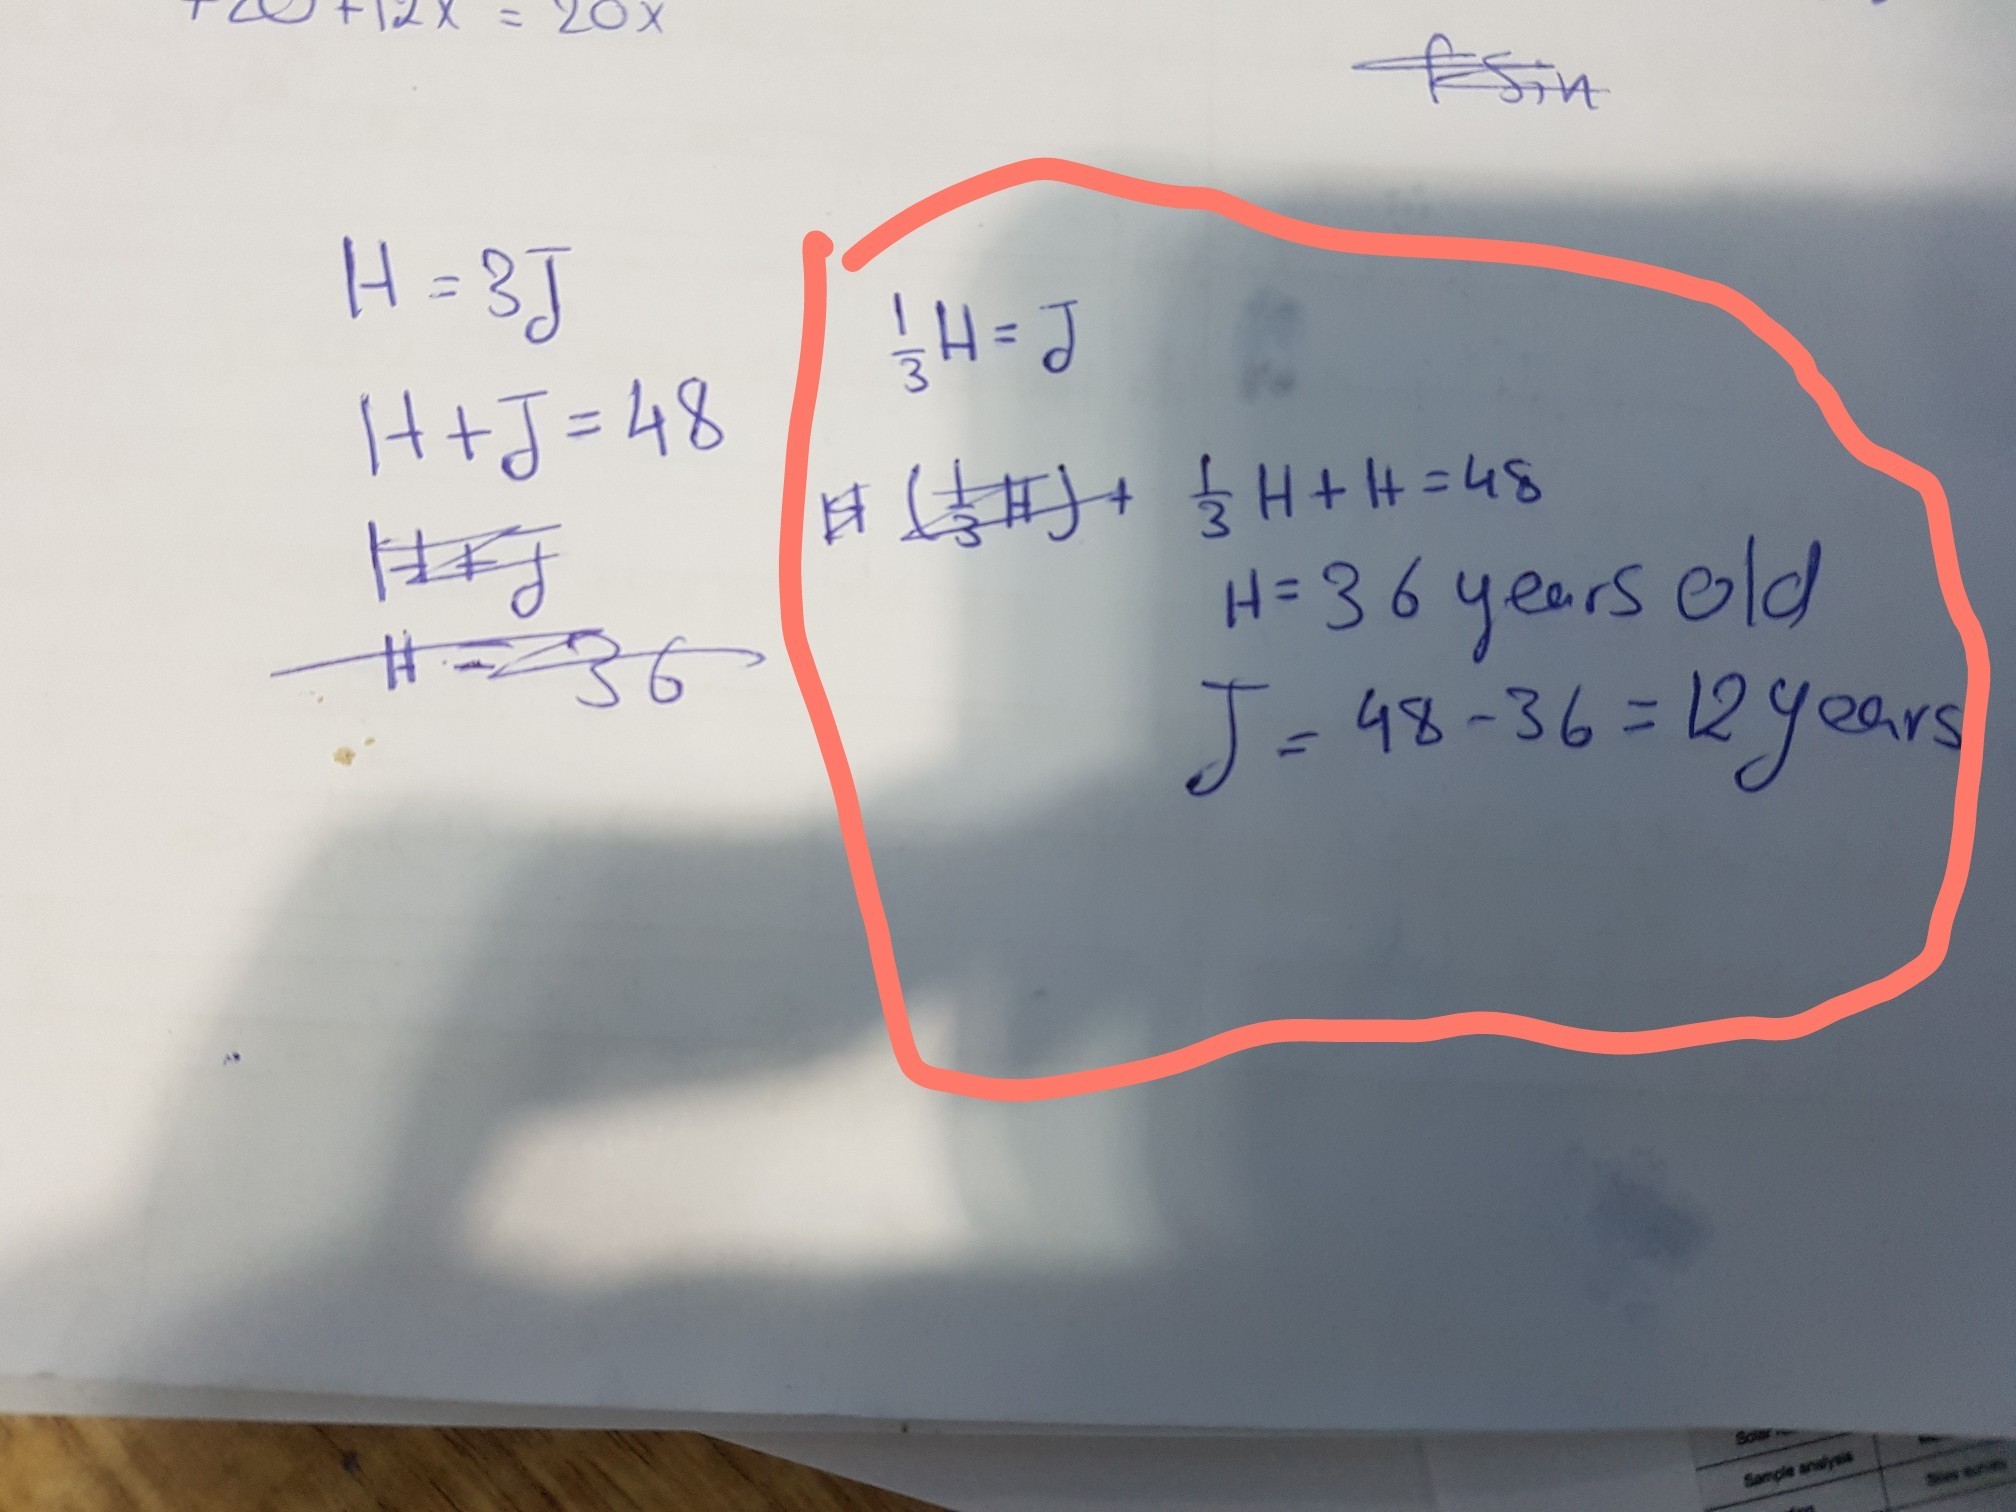 +20+12x = 20x
fsin
H = 3J
H+J = 48
H+J
H = 36
1/3 H = J
H (1/3 H) + 1/3 H + H = 48
H = 36 years old
J = 48 - 36 = 12 years
Sample analysis